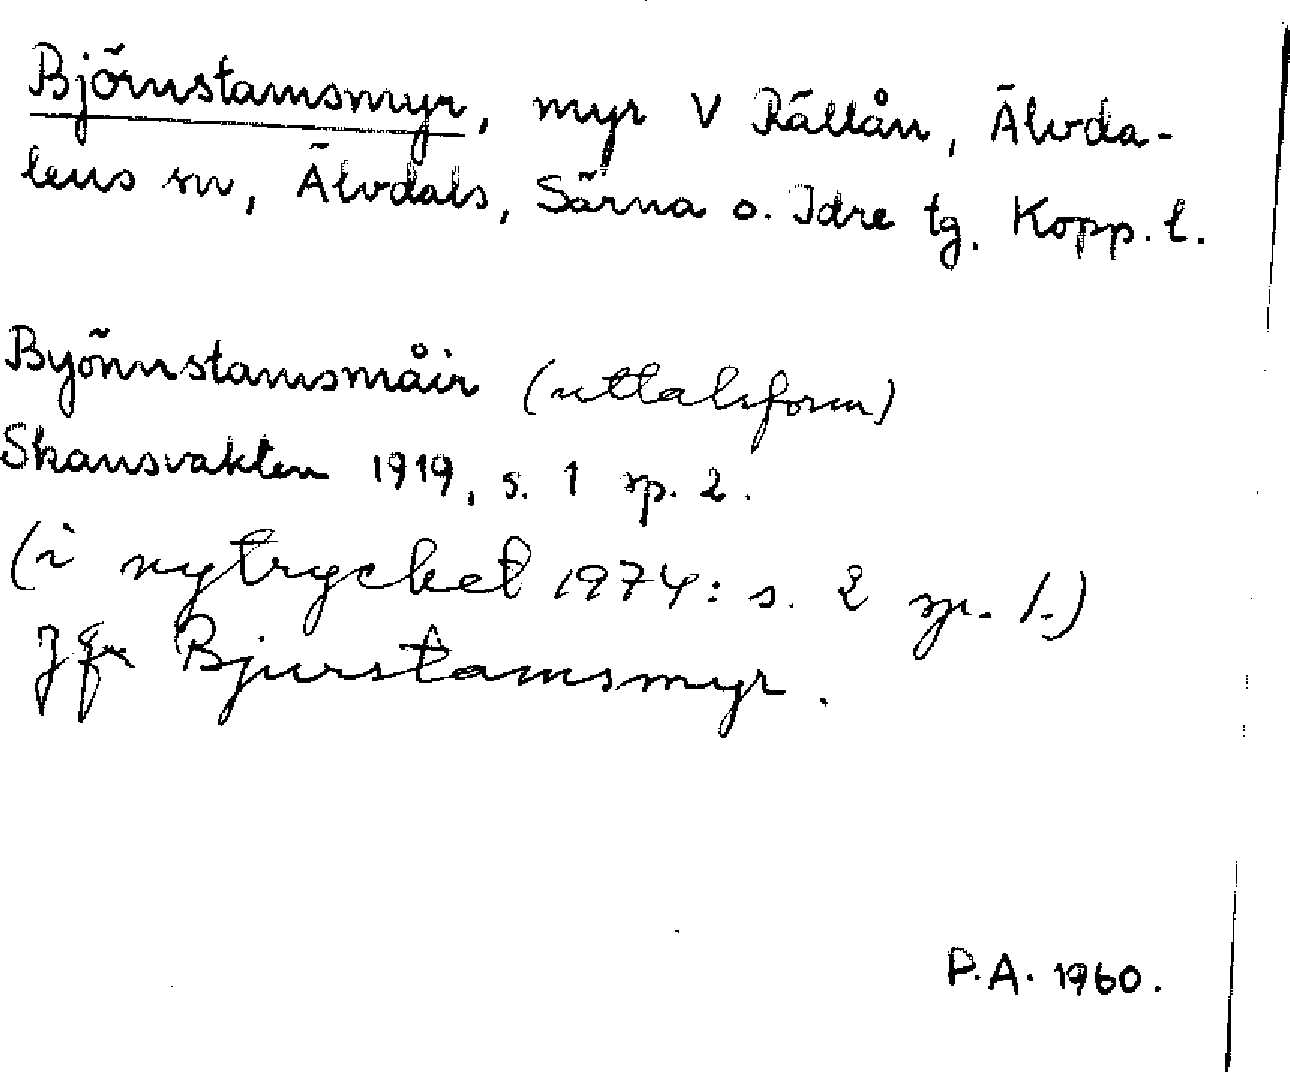 Björnstamsmyr, myr V Rällån, Älvda-
lens sn, Älvdals, Särna o. Idre tg. Kopp. l.
Byönnstamsmåir (uttalsform)
Skansvakten 1919, s. 1 sp. 2.
(i nytrycket 1974: s. 2 sp. 1.)
Jfr Bjurstamsmyr.
P.A. 1960.